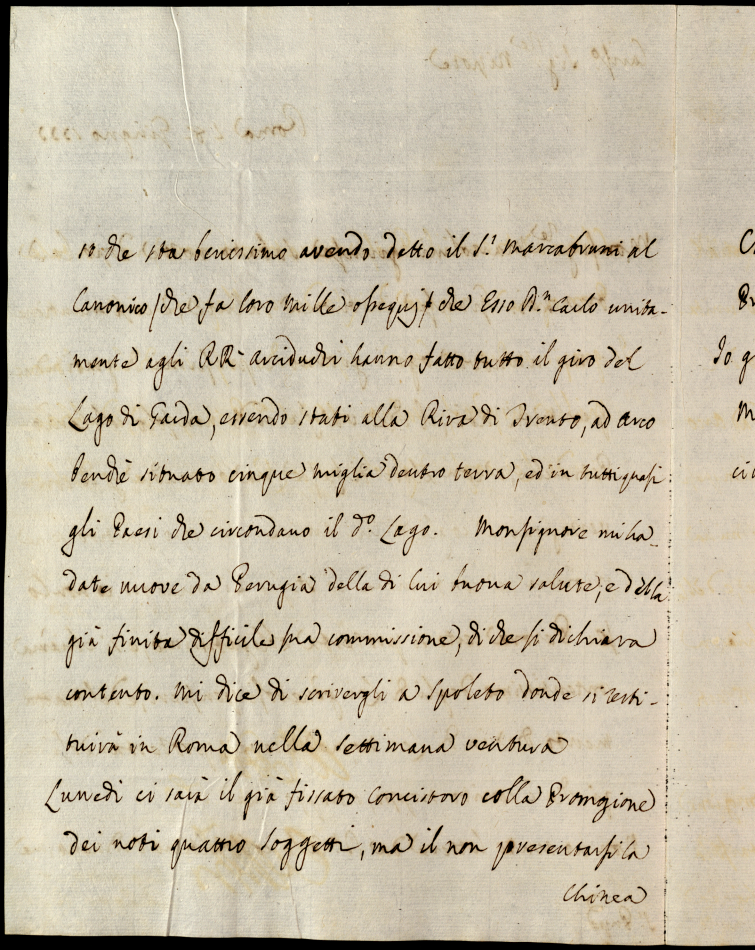 so che sta benissimo avendo detto il S.r Marcabruni al
Canonico (che fa loro mille ossequj) che Esso D.n Carlo unita-
mente agli RR. Arciduchi hanno fatto tutto il giro del
Lago di Garda, essendo stati alla Riva di Trento, ad Arco
benchè situato cinque miglia dentro terra, ed in tutti quasi
gli Paesi che circondano il d.o Lago. Monsignore mi ha
date nuove da Perugia della di lui buona salute, e della
già finita difficile sua commissione, di che si dichiara
contento. Mi dice di scrivergli a Spoleto donde si resti-
tuirà in Roma nella settimana ventura
Lunedì ci sarà il già fissato Concistoro colla Promozione
dei noti quattro Soggetti, ma il non presentarsi la
Chinea
Io